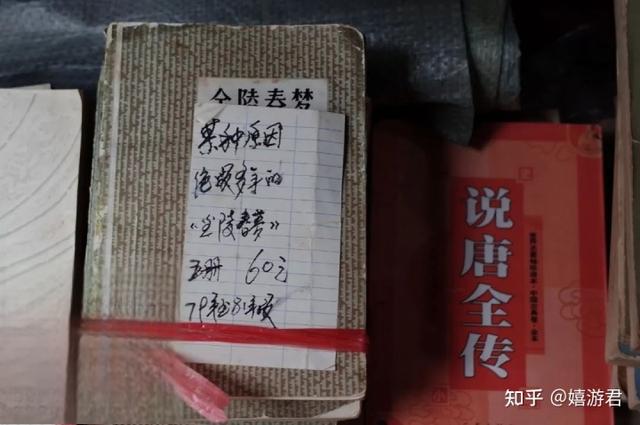 金陵春梦
某种原因
绝版多年的
《金陵春梦》
五册 60元
79年至81年版
说唐全传
知乎 @嬉游君